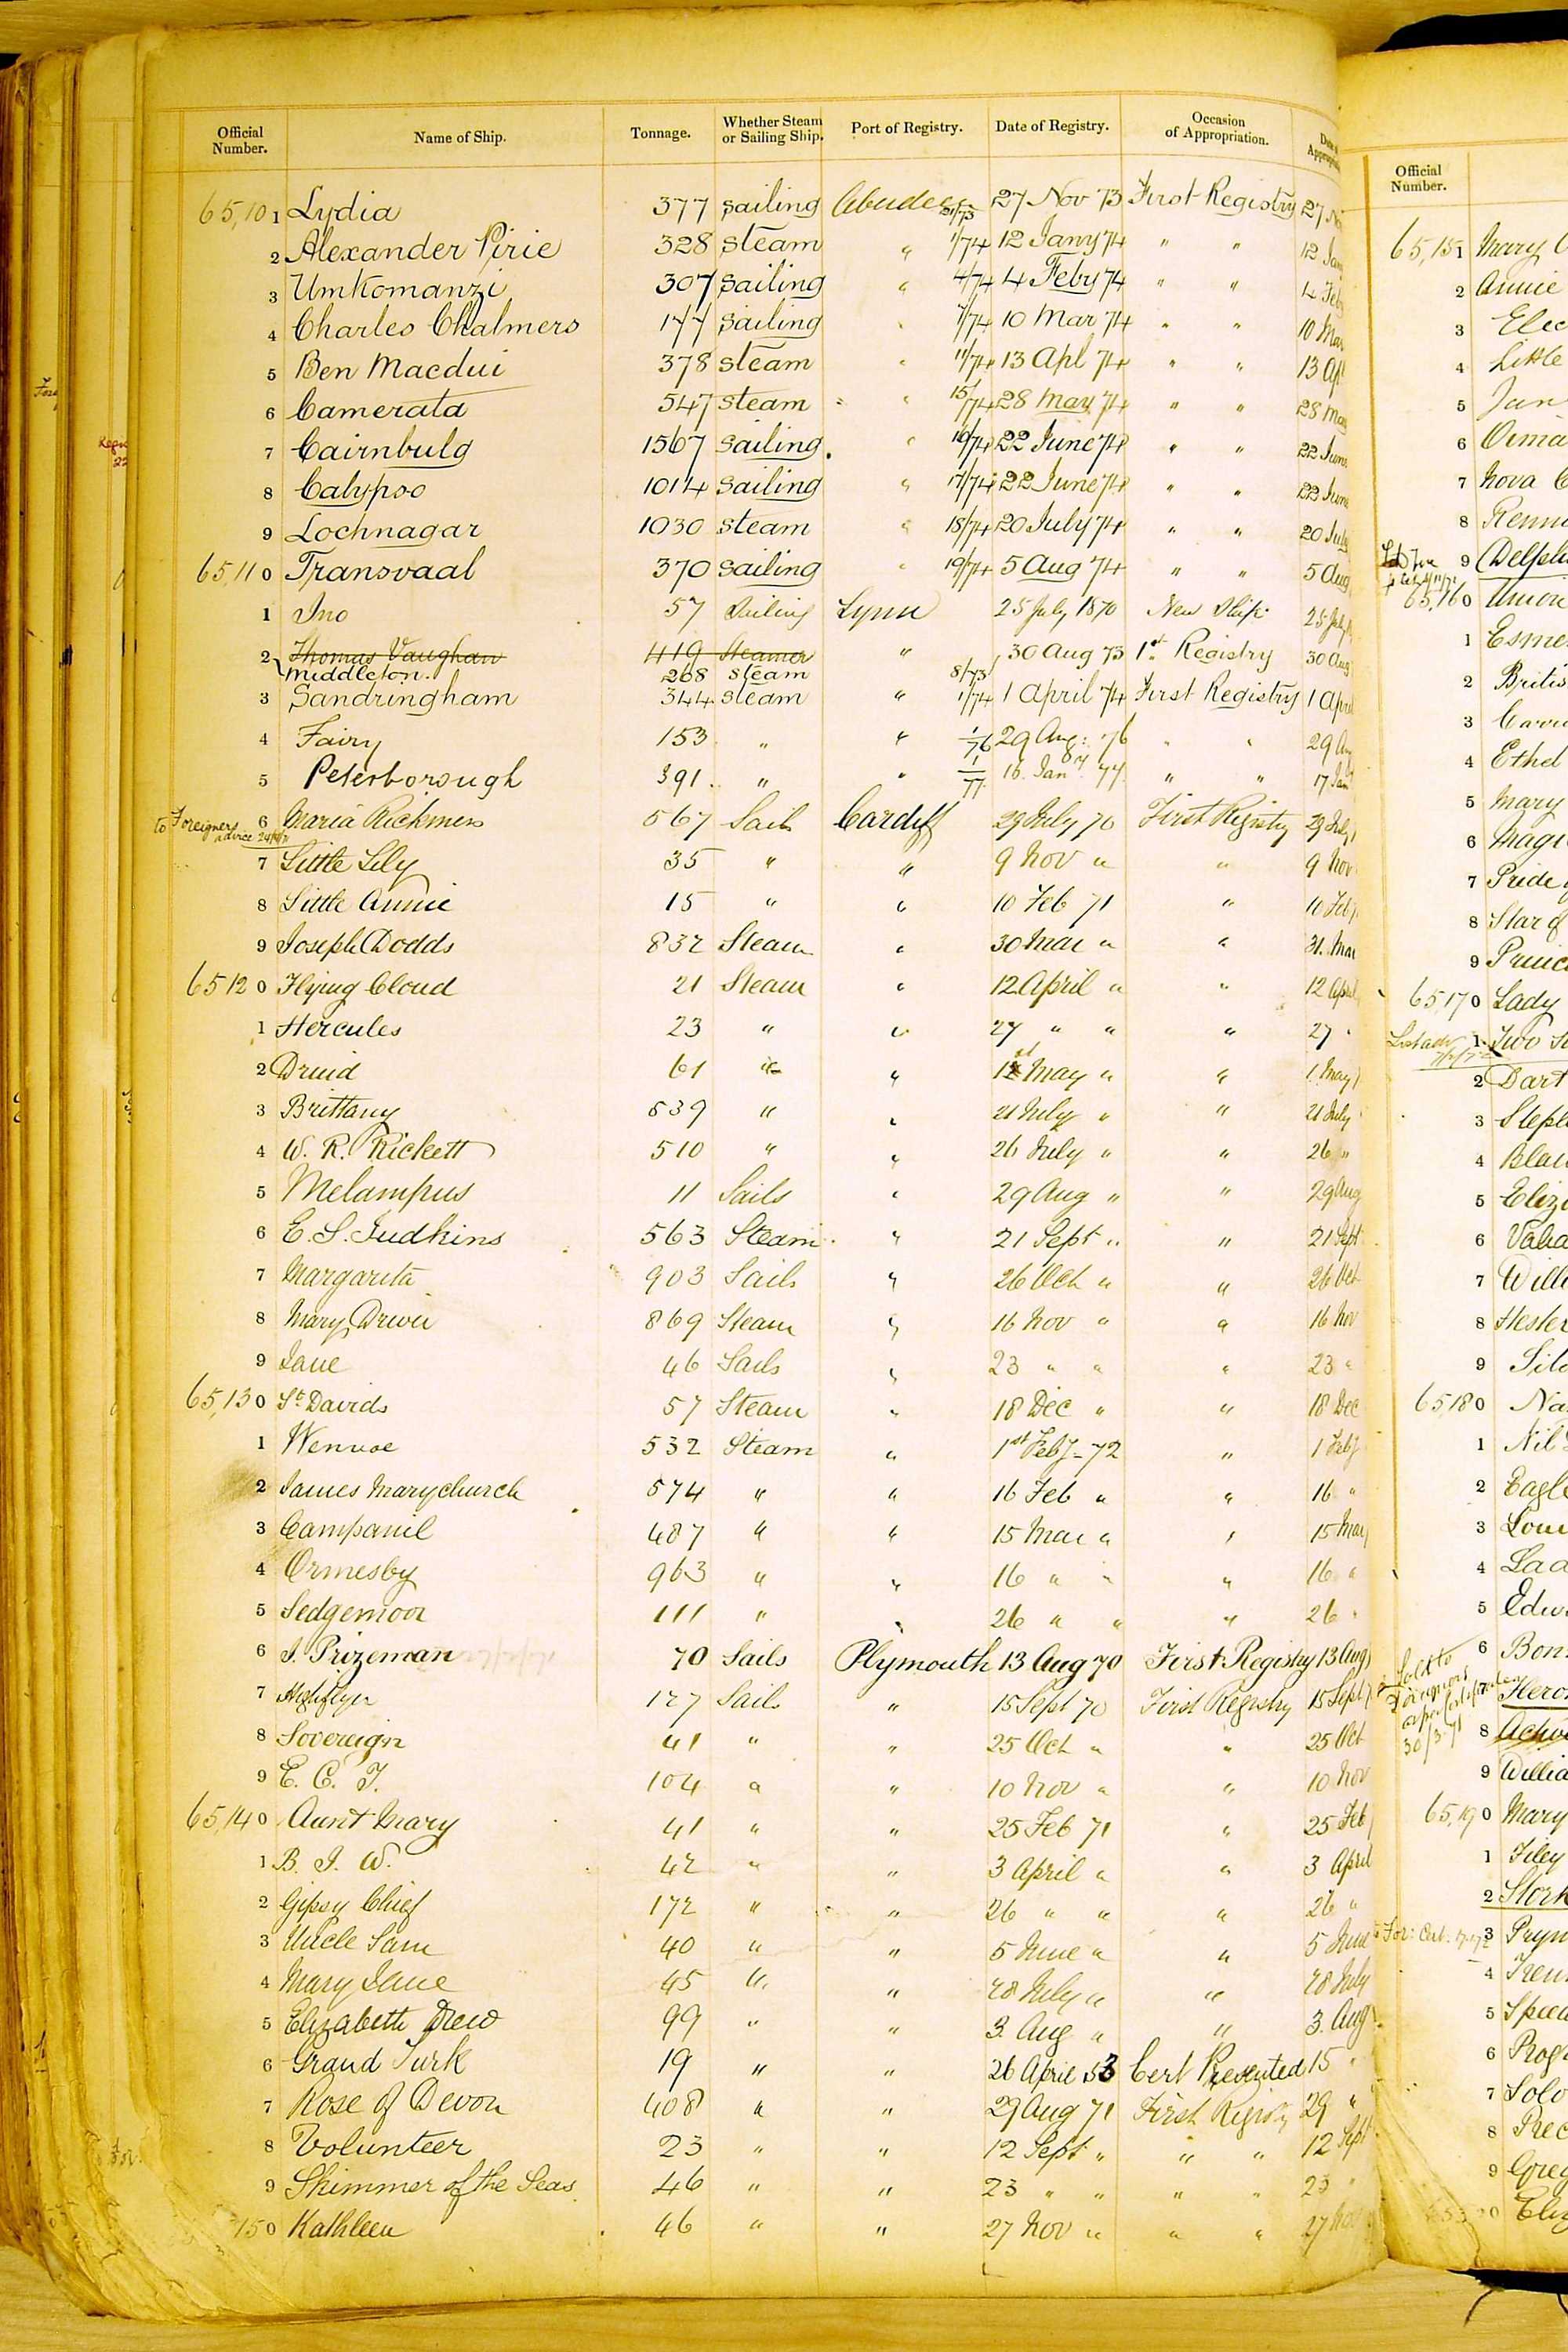 Official Number. Name of Ship. Tonnage. Whether Steam or Sailing Ship. Port of Registry. Date of Registry. Occasion of Appropriation.
65,101 Lydia 377 sailing 27 Nov 73 First Registry
2 Alexander Pirie 328 steam " 1/74 12 Jany 74 " "
3 Umkomanzi 307 sailing " 4/74 4 Feby 74 " " 4 Feb
4 Charles Chalmers sailing " 7/74 10 Mar 74 " " 10 Mar
5 Ben Macdui 378 steam " 11/74 13 Apl 74 " " 13 Ap
6 Camerata 547 steam " " 15/74 28 May 74 " " 28 May
7 Cairnbulg 1567 sailing. " 16/74 22 June 74 " " 22 June
8 Calypso 1014 sailing " 17/74 22 June 74 " " 22 June
9 Lochnagar 1030 steam " 18/74 20 July 74 " " 20 July
65,110 Transvaal 370 sailing " 19/74 5 Aug 74 " " 5 Aug
1 Ino 57 Sailing Lynn 25 July 1870 New Ship 25 July
2 Thomas Vaughan 419 Steamer " 30 Aug 73 1st Registry 30 Aug
Middleton. 268 steam 8/73
3 Sandringham 344 steam " 1/74 1 April 74 First Registry 1 April
4 Fairy 153 " " 1/76 29 Aug: 76 " " 29 Au
5 Peterborough 391. " " 1/77 16 Jany 77 " " 17 Jan
to Foreigners 6 Maria Rickmers 567 Sails Cardiff 29 July 70 First Registry 29 July
7 Little Lily 35 " " 9 Nov " " 9 Nov
8 Little Annie 15 " " 10 Feb 71 " 10 Feb
9 Joseph Dodds 832 Steam " 30 Mar " " 31. Mar
65120 Flying Cloud 21 Steam " 12 April " " 12 April
1 Hercules 23 " " 27 " " " 27 "
2 Druid 61 " " 1st May " " 1 May
3 Brittany 539 " " 21 July " " 21 July
4 W. R. Rickett 510 " " 26 July " " 26 "
5 Melampus 11 Sails " 29 Aug " " 29 Aug
6 E. S. Judkins 563 Steam " 21 Sept " " 21 Sept
7 Margarita 903 Sails " 26 Oct " " 26 Oct
8 Mary Driver 869 Steam " 16 Nov " " 16 Nov
9 Jane 46 Sails " 23 " " " 23 "
65,130 St Davids 57 Steam " 18 Dec " " 18 Dec
1 Wenvoe 532 Steam " 1st Feby - 72 " 1 Feby
2 James Marychurch 574 " " 16 Feb " " 16 "
3 Campanil 487 " " 15 Mar " " 15 Mar
4 Ormesby 963 " " 16 " " " 16 "
5 Sedgemoor 111 " " 26 " " " 26 "
6 J. Prizeman 70 Sails Plymouth 13 Aug 70 First Registry 13 Aug
7 Highflyer 127 Sails " 15 Sept 70 First Registry 15 Sept
8 Sovereign 41 " " 25 Oct " " 25 Oct
9 E. C. T. 104 " " 10 Nov " " 10 Nov
65,140 Aunt Mary 41 " " 25 Feb 71 " 25 Feb
1 B. I. W. 42 " " 3 April " " 3 April
2 Gipsy Chief 172 " " 26 " " " 26 "
3 Uncle Sam 40 " " 5 June " " 5 June
4 Mary Jane 45 " " 28 July " " 28 July
5 Elizabeth Drew 99 " " 3 Aug " " 3. Aug
6 Grand Turk 19 " " 26 April 53 Cert Presented 15 "
7 Rose of Devon 408 " " 29 Aug 71 First Registry 29 "
8 Volunteer 23 " " 12 Sept " " " 12 Sept
9 Shimmer of the Seas. 46 " " 23 " " " " 23 "
150 Kathleen 46 " " 27 Nov " " " 27 Nov
Official Number.
65,151 Mary
2 Annie
3 Elec
4 Little
5
6
7 Nova
8
9 Delph
65,160 Union
1 Esme
2 Britis
3
4 Ethel
5 Mary
6 Magi
7 Pride
8 Star of
9
65,170 Lady
1 Two
2 Dart
3 Steph
4
5 Eliz
6
7 Willi
8 Hester
9
65,180
1
2 Eagle
3
4
5 Edw
6
Sold to 7 Hero
30/3/71 8
9 William
65,190 Mary
1 Filey
2 Stork
3
4
5
6
7 Solo
8
9 Greg